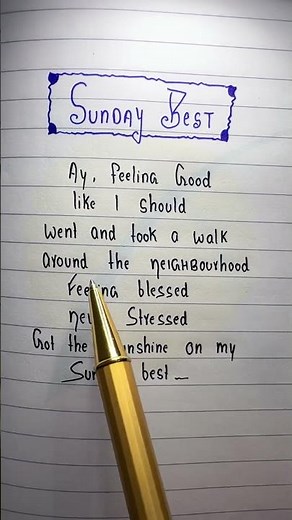 Sunday Best
Ay, feeling Good
like I should
went and took a walk
around the neighbourhood
Feeling blessed
Stressed
Got the sunshine on my
best _